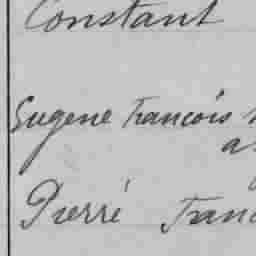 Constant
Eugene Francois
Pierré Franc